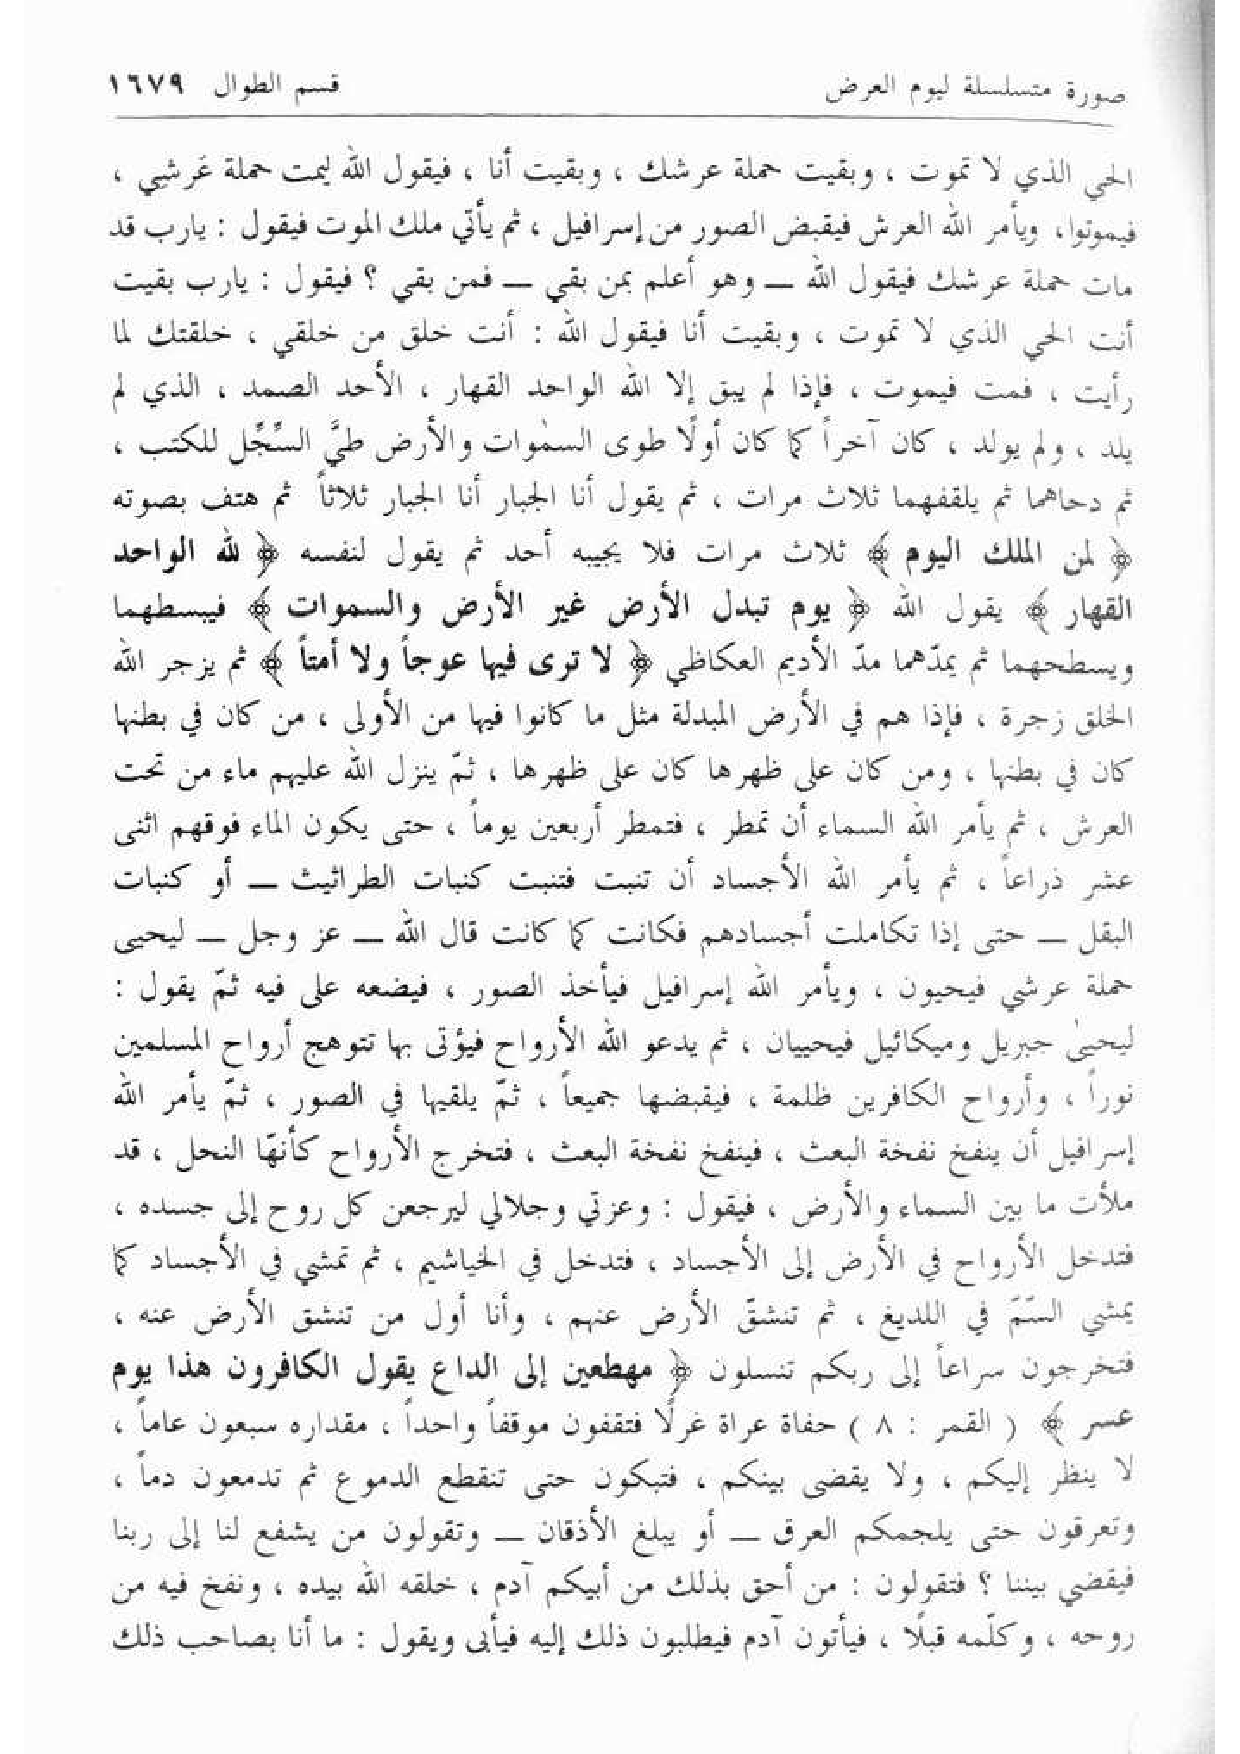 صورة متسلسلة ليوم العرض قسم الطوال ١٦٧٩
الحي الذي لا تموت ، وبقيت حملة عرشك ، وبقيت أنا ، فيقول الله ليمت حملة عَرشي ،
فيموتوا، ويأمر الله العرش فيقبض الصور من إسرافيل ، ثم يأتي ملك الموت فيقول : يارب قد
مات حملة عرشك فيقول الله ــ وهو أعلم بمن بقي ــ فمن بقي ؟ فيقول : يارب بقيت
أنت الحي الذي لا تموت ، وبقيت أنا فيقول الله : أنت خلق من خلقي ، خلقتك لما
رأيت ، فمت فيموت ، فإذا لم يبق إلا الله الواحد القهار ، الأحد الصمد ، الذي لم
يلد ، ولم يولد ، كان آخراً كما كان أولًا طوى السمٰوات والأرض طيَّ السِّجِّل للكتب ،
ثم دحاهما ثم يلقفهما ثلاث مرات ، ثم يقول أنا الجبار أنا الجبار ثلاثاً ثم هتف بصوته
﴿ لمن الملك اليوم ﴾ ثلاث مرات فلا يجيبه أحد ثم يقول لنفسه ﴿ لله الواحد
القهار ﴾ يقول الله ﴿ يوم تبدل الأرض غير الأرض والسموات ﴾ فيبسطهما
ويسطحهما ثم يمدّهما مدّ الأديم العكاظي ﴿ لا ترى فيها عوجاً ولا أمتاً ﴾ ثم يزجر الله
الخلق زجرة ، فإذا هم في الأرض المبدلة مثل ما كانوا فيها من الأولى ، من كان في بطنها
كان في بطنها ، ومن كان على ظهرها كان على ظهرها ، ثمّ ينزل الله عليهم ماء من تحت
العرش ، ثم يأمر الله السماء أن تمطر ، فتمطر أربعين يوماً ، حتى يكون الماء فوقهم اثنى
عشر ذراعاً ، ثم يأمر الله الأجساد أن تنبت فتنبت كنبات الطراثيث ــ أو كنبات
البقل ــ حتى إذا تكاملت أجسادهم فكانت كما كانت قال الله ــ عز وجل ــ ليحيى
حملة عرشي فيحيون ، ويأمر الله إسرافيل فيأخذ الصور ، فيضعه على فيه ثمّ يقول :
ليحيىٰ جبريل وميكائيل فيحييان ، ثم يدعو الله الأرواح فيؤتى بها تتوهج أرواح المسلمين
نوراً ، وأرواح الكافرين ظلمة ، فيقبضها جميعاً ، ثمّ يلقيها في الصور ، ثمّ يأمر الله
إسرافيل أن ينفخ نفخة البعث ، فينفخ نفخة البعث ، فتخرج الأرواح كأنهّا النحل ، قد
ملأت ما بين السماء والأرض ، فيقول : وعزتي وجلالي ليرجعن كل روح إلى جسده ،
فتدخل الأرواح في الأرض إلى الأجساد ، فتدخل في الخياشيم ، ثم تمشي في الأجساد كما
يمشي السَّمّ في اللديغ ، ثم تنشقّ الأرض عنهم ، وأنا أول من تنشق الأرض عنه ،
فتخرجون سراعاً إلى ربكم تنسلون ﴿ مهطعين إلى الداع يقول الكافرون هذا يوم
عسر ﴾ ( القمر : ٨ ) حفاة عراة غرلًا فتقفون موقفاً واحداً ، مقداره سبعون عاماً ،
لا ينظر إليكم ، ولا يقضى بينكم ، فتبكون حتى تنقطع الدموع ثم تدمعون دماً ،
وتعرقون حتى يلجمكم العرق ــ أو يبلغ الأذقان ــ وتقولون من يشفع لنا إلى ربنا
فيقضي بيننا ؟ فتقولون : من أحق بذلك من أبيكم آدم ، خلقه الله بيده ، ونفخ فيه من
روحه ، وكلّمه قبلًا ، فيأتون آدم فيطلبون ذلك إليه فيأبى ويقول : ما أنا بصاحب ذلك